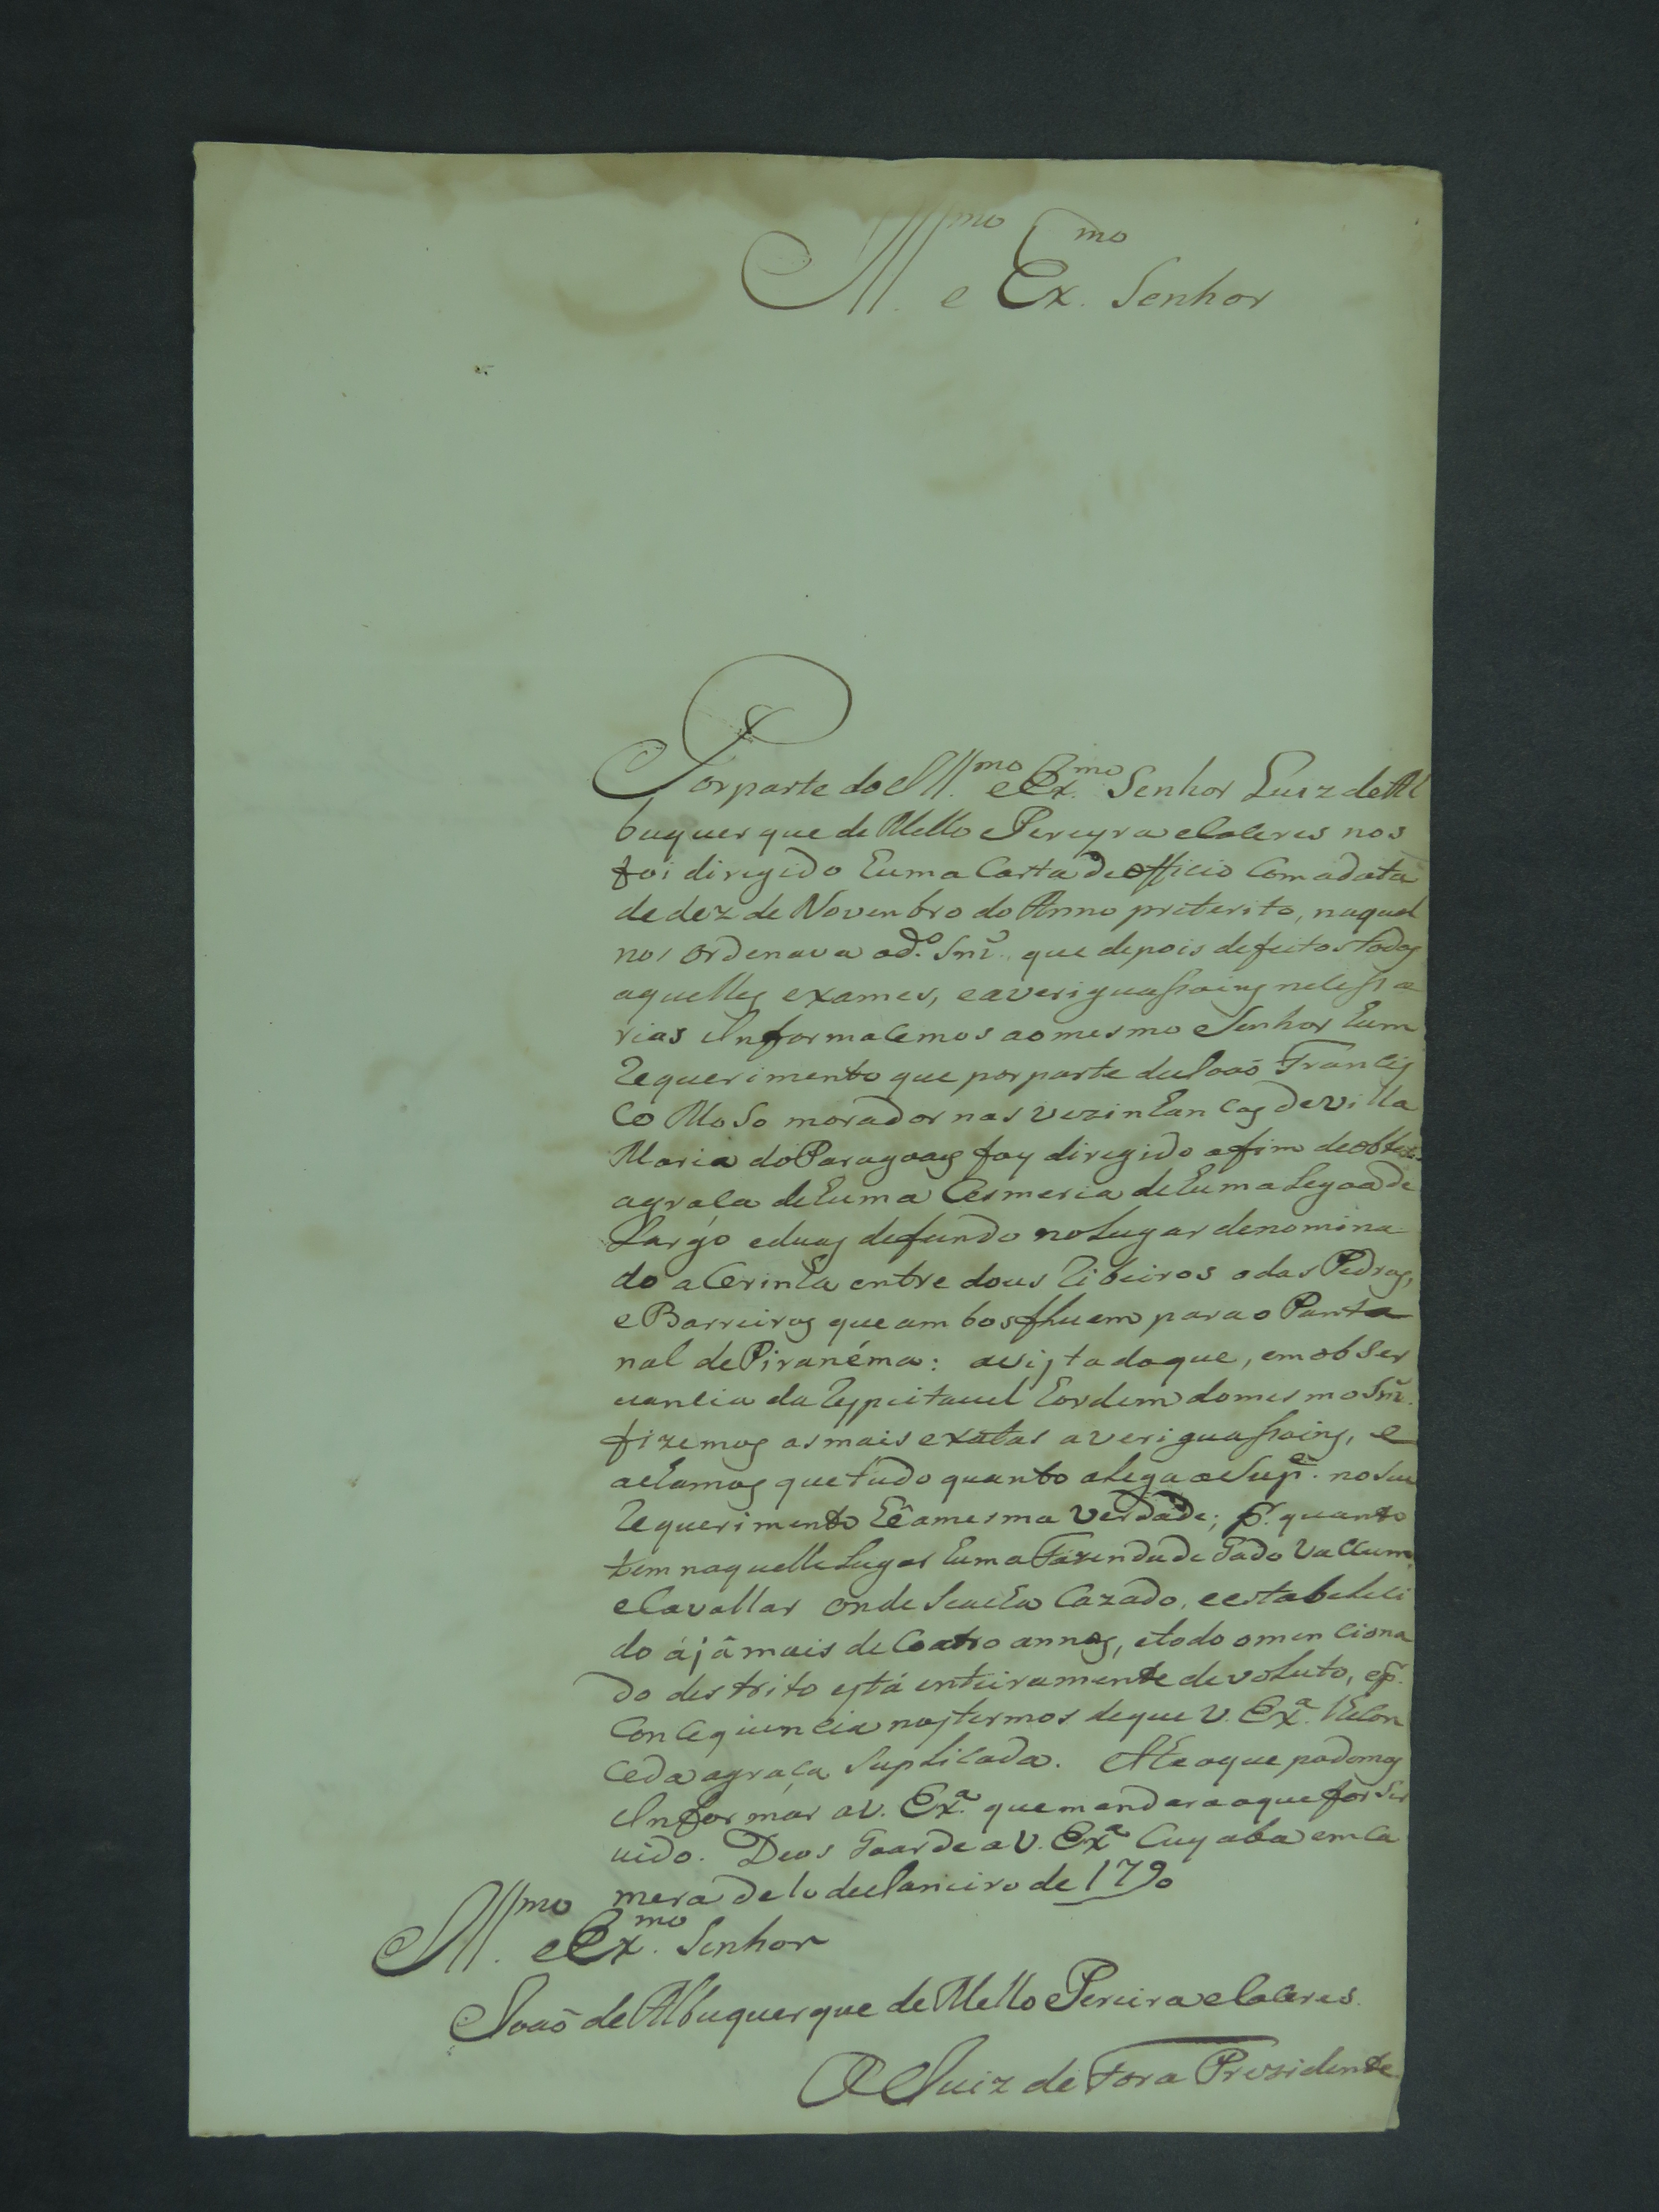 Ill.mo e Ex.mo Senhor
Por parte do Ill.mo e Ex.mo Senhor Luiz de Al
buquerque de Mello Pereyra e Caceres nos
foi dirigido huma Carta de officio Com a data
de dez de Novenbro do Anno preterito, na qual
nos ordenava o d.o Snr. que depois de feitos todos
aquelles exames, e averiguassoins necessa
rias Informacemos ao mesmo Senhor hum
Requerimento que por parte de Joaõ Francis
Co Moso morador nas vezinhancas de villa
Maria do Paragoay foy dirigido a fim de obter
a graca de huma Cesmeria de huma Legoa de
Largo e duas de fundo no Lugar denomina
do a Cerinha entre dous Ribeiros o das Pedras,
e Barreiros que ambos fluem para o Panta
nal de Piranéma: a vista do que, em obser
vancia da Respeitavel hordem do mesmo Snr.
fizemos as mais exatas averiguassoins, e
achamos que tudo quanto alega o Sup.e no seu
Requerimento hê a mesma verdade; p.r quanto
tem naquelle Lugar huma Fazenda de Gado Vaccum
e Cavallar onde se acha Cazado, e estabeleci
do á já mais de Coatro annos, e todo o menciona
do destrito está enteiramente devoluto, e p.r
Conceqiuencia nos termos de que V. Ex.a lhe Con
ceda a graca Suplicada. He o que podemos
Informar a V. Ex.a que mandara o que for Ser
vido. Deos Goarde a V. Ex.a Cuyaba em Ca
mera de 10 de Janeiro de 1790
Ill.mo e Ex.mo Senhor
Joaõ de Albuquerque de Mello Pereira e Caceres.
O Juiz de Fora Prezidente